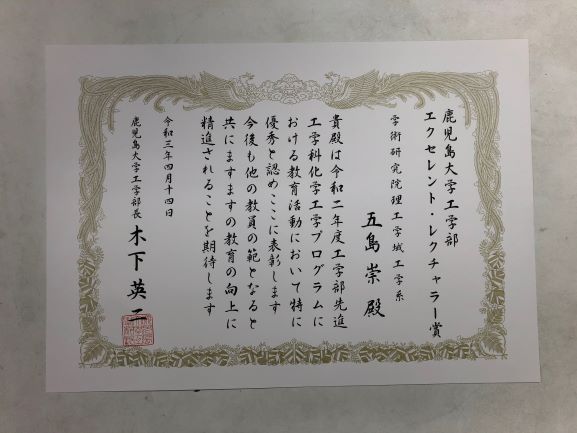 鹿児島大学工学部
エクセレント・レクチャラー賞
学術研究院理工学域工学系
五島崇 殿
貴殿は令和二年度工学部先進
工学科化学工学プログラムに
おける教育活動において特に
優秀と認めここに表彰します
今後も他の教員の範となると
共にますますの教育の向上に
精進されることを期待します
令和三年四月十四日
鹿児島大学工学部長 木下英二